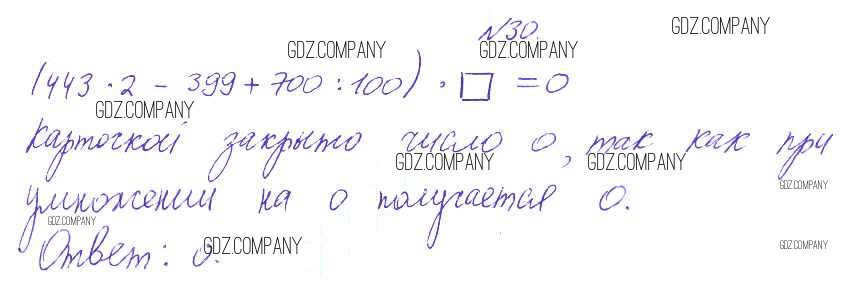 №30.
GDZ.COMPANY
GDZ.COMPANY GDZ.COMPANY
(443 · 2 - 399 + 700 : 100) · □ = 0
GDZ.COMPANY
Карточкой закрыто число 0, так как при
GDZ.COMPANY GDZ.COMPANY
GDZ.COMPANY
умножении на 0 получается 0.
GDZ.COMPANY
Ответ: 0.
GDZ.COMPANY
GDZ.COMPANY